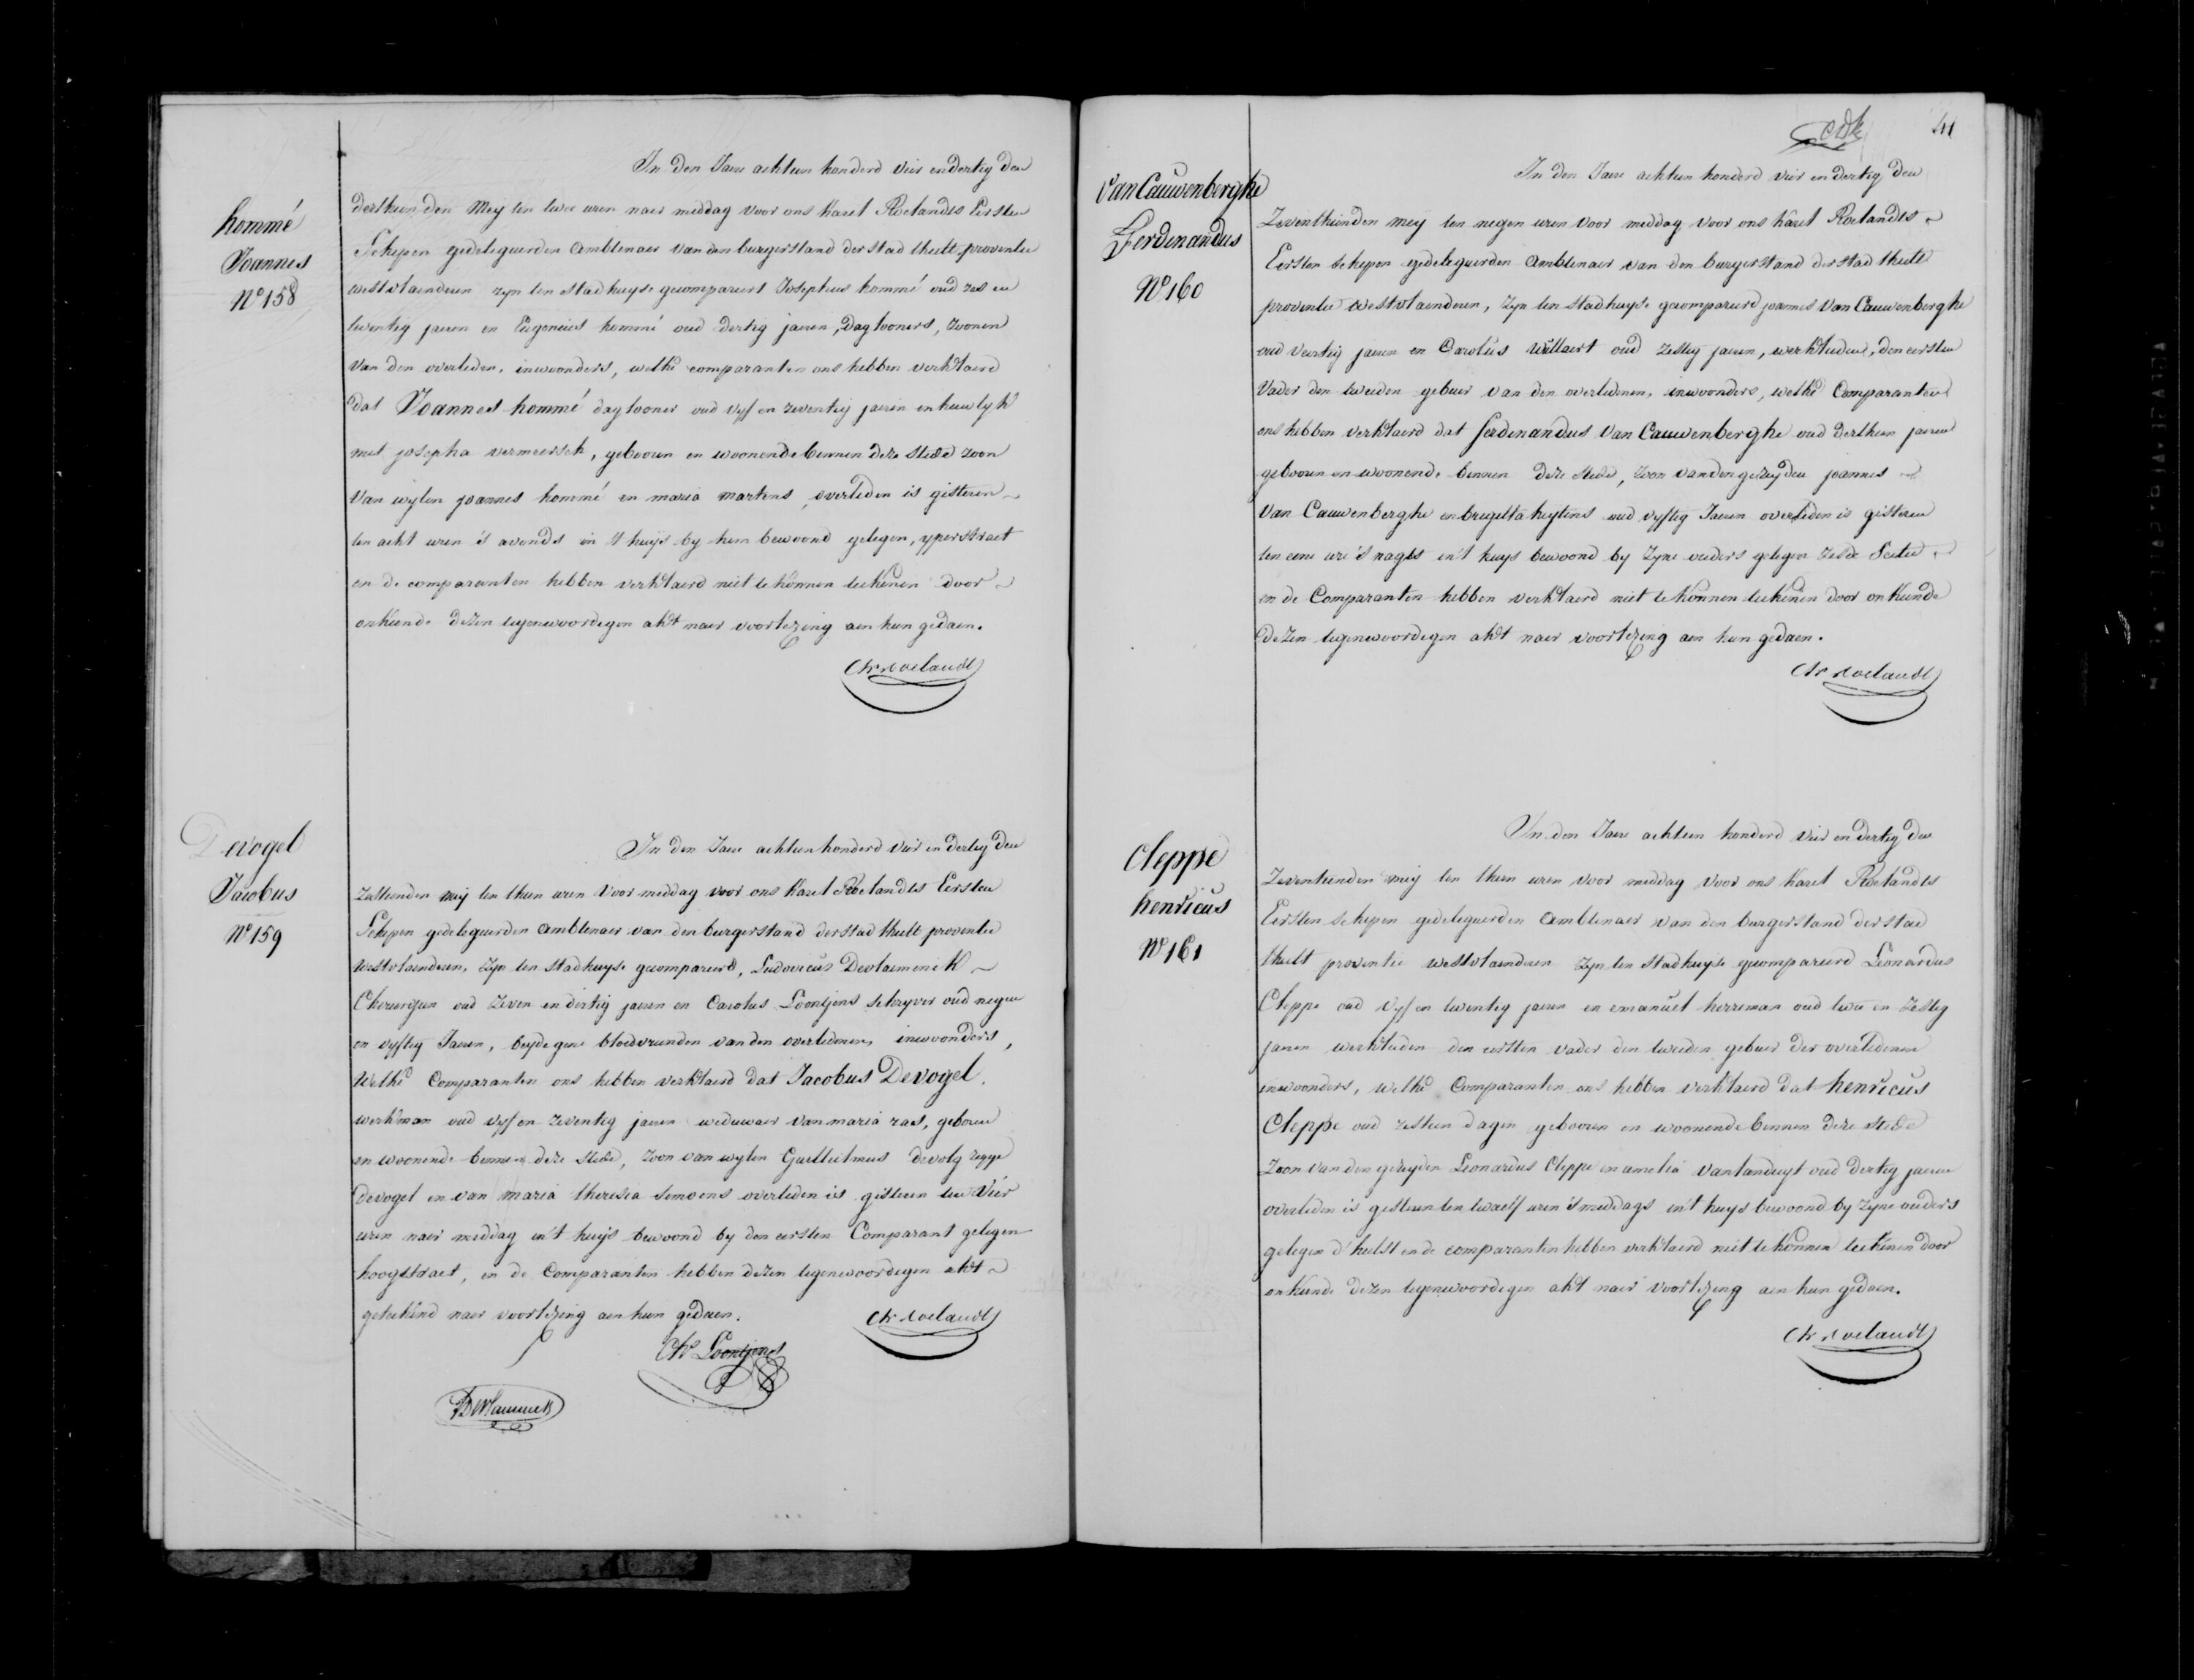 hommé
Joannes
N° 158
In den Jare achtien honderd vier en dertig den
derthien den Mey ten twee uren naer middag voor ons Karel Roelandts Eersten
Schepen gedelegueerden Ambtenaer van den burgerstand der stad thielt provintie
westvlaenderen zyn ten stadhuyse gecompareert Josephus hommé oud zes en
twentig jaeren en Eugenius hommé oud dertig jaeren, daglooners, zoonen
van den overleden, inwoonders, welke comparanten ons hebben verklaerd
dat Joannes hommé daglooner oud vyf en zeventig jaeren in huwlyk
met josepha vermeersch, gebooren en woonende binnen deze stede zoon
van wylen joannes hommé en maria martens, overleden is gisteren
ten acht uren 's avonds in 't huys by hem bewoond gelegen, yperstraet
en de comparanten hebben verklaerd niet te konnen teekenen door
onkunde dezen tegenwoordigen akt naer voorlezing aen hun gedaen.
Chr Roelandt
Devogel
Jacobus
N° 159
In den Jare achtien honderd vier en dertig den
zesthienden mey ten thien uren voor middag voor ons Karel Roelandts Eersten
Schepen gedelegueerden Ambtenaer van den burgerstand der stad thielt provintie
westvlaenderen, Zyn ten stadhuyse gecompareerd, Ludovicus Devlaeminck
Chirurgien oud Zeven en dertig jaeren en Carolus Loontjens schryver oud negen
en vyftig Jaeren, beyde gene bloedvrienden van den overledenen, inwoonders,
Welke Comparanten ons hebben verklaerd dat Jacobus Devogel,
werkman oud vyf en Zeventig jaeren weduwaer van maria raes, geboren
en woonende binnen deze stede, zoon van wylen Guilleilmus devolg zegge
devogel en van maria theresia simoens overleden is gisteren ten Vier
uren naer middag in't huys bewoond by den eersten Comparant gelegen
hoogstraet, en de Comparanten hebben dezen tegenwoordigen akt
geteekend naer voorlezing aen hun gedaen.
Chr Roelandt
Ch Loontjens
41
Van Cauwenberghe
Ferdinandus
N° 160
In den Jare achtien honderd vier en dertig den
Zeventhienden mey ten negen uren voor middag voor ons Karel Roelandts
Eersten Schepen gedelegueerden Ambtenaer van den burgerstand der stad thielt
provintie westvlaenderen, Zyn ten stadhuyse gecompareerd joannes Van Cauwenberghe
oud veertig jaeren en Carolus Willaert oud zestig jaeren, werklieden, den eersten
Vader den tweeden gebuer van den overledenen, inwoonders, welke Comparanten
ons hebben verklaerd dat ferdinandus Van Cauwenberghe oud derthien jaeren
gebooren en woonende binnen deze stede, zoon van den gezeyden joannes
Van Cauwenberghe en brigitta heytens oud vyftig Jaeren overleden is gisteren
ten eene ure 's nagts in't huys bewoond by Zyne ouders gelegen
en de Comparanten hebben verklaerd niet te konnen teekenen door onkunde
dezen tegenwoordigen akt naer voorlezing aen hun gedaen.
Chr Roelandt
Cleppe
henricus
N° 161
In den Jare achtien honderd vier en dertig den
Zeventienden mey ten thien uren voor middag voor ons Karel Roelandts
Eersten schepen gedelegueerden Ambtenaer van den burgerstand der stad
thielt provintie westvlaenderen zyn ten stadhuyse gecompareerd Leonardus
Cleppe oud vyf en twentig jaeren en emanuel herreman oud twee en Zestig
jaeren werklieden den eersten vader den tweeden gebuer der overledenen
inwoonders, welke Comparanten ons hebben verklaerd dat henricus
Cleppe oud zesthien dagen gebooren en woonende binnen deze stede
Zoon van den gezeyden Leonardus Cleppe en amelia vanlanduyt oud dertig jaeren
overleden is gisteren ten twaelf uren 's middags in't huys bewoond by zyne ouders
gelegen d'hulst en de comparanten hebben verklaerd niet te konnen teekenen door
onkunde dezen tegenwoordigen akt naer voorlezing aen hun gedaen.
Chr Roelandt